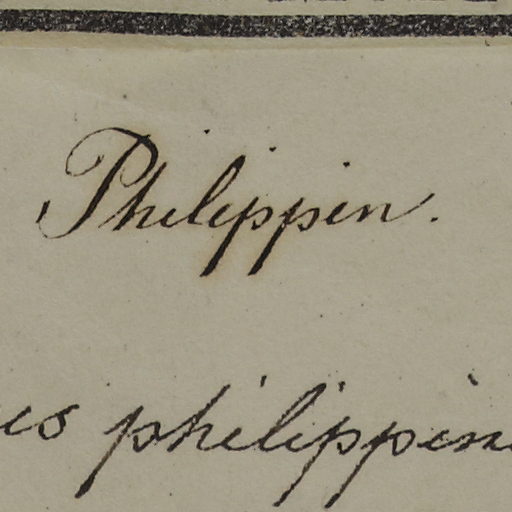 Philippin.
philippin